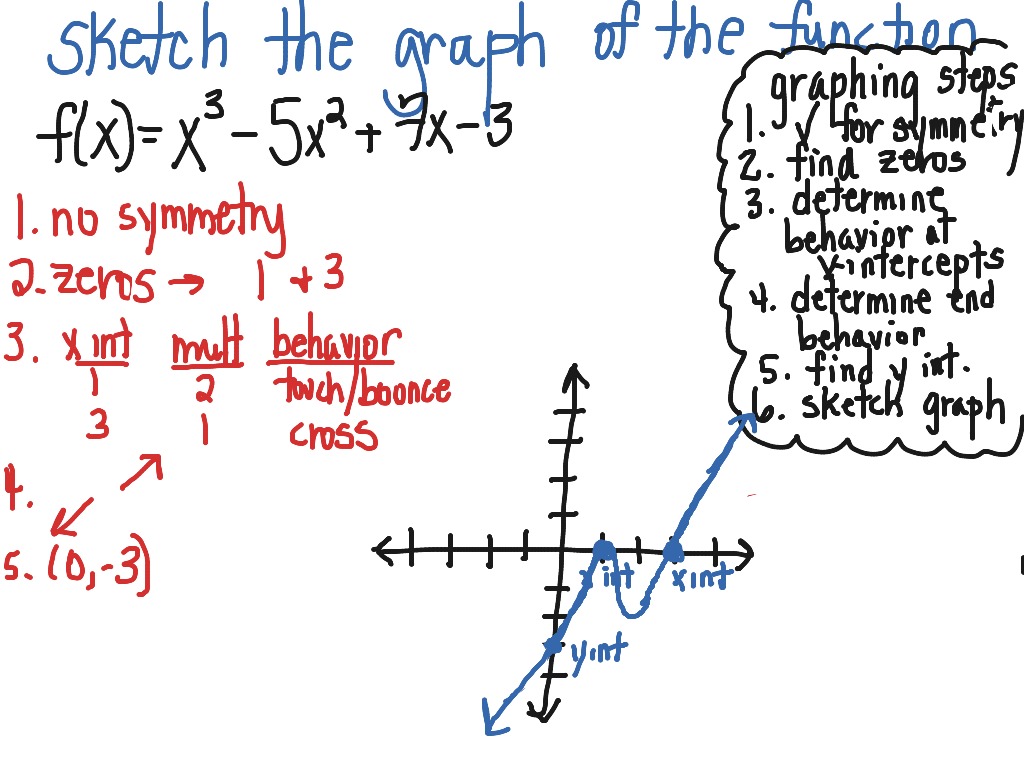 sketch the graph of the function
f(x) = x³ - 5x² + 7x - 3
graphing steps
1. √ for symmetry
2. find zeros
3. determine
behavior at
x-intercepts
4. determine end
behavior
5. find y int.
6. sketch graph
1. no symmetry
2. zeros → 1 + 3
3. x int mult behavior
1 2 touch/bounce
3 1 cross
4.
5. (0, -3)
x int
x int
y int